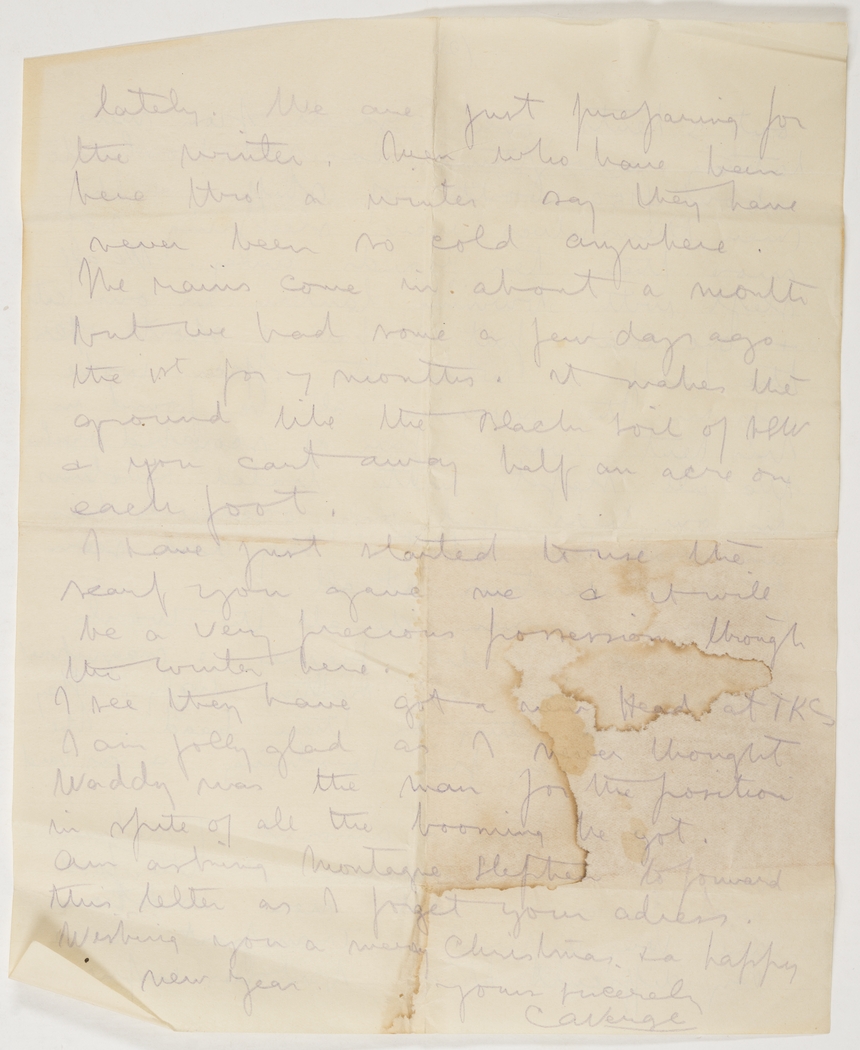 lately. We are just preparing for
the winter. Men who have been
here thro' a winter say they have
never been so cold anywhere.
The rains come in about a month
but we had some a few days ago
the 1st for 7 months. It makes the
ground like the black soil of NSW
& you cart away half an acre on
each foot.
I have just started to use the
scarf you gave me & it will
be a very precious possession through
the winter here.
I see they have got a new Head at TKS
I am jolly glad as I never thought
Waddy was the man for the position
in spite of all the booming he got.
Am asking Montague Stephen to forward
this letter as I forget your adress.
Wishing you a merry Christmas & a happy
new year.
yours sincerely